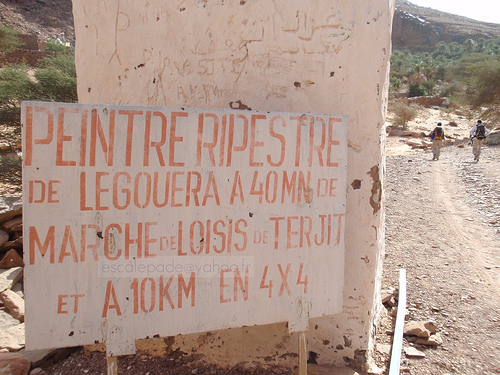 PEINTRE RIPESTRE
DE LEGOUERA A 40MN DE
MARCHE DE LOISIS DE TERJIT
escalepade@yahoo.fr
ET A 10KM EN 4X4